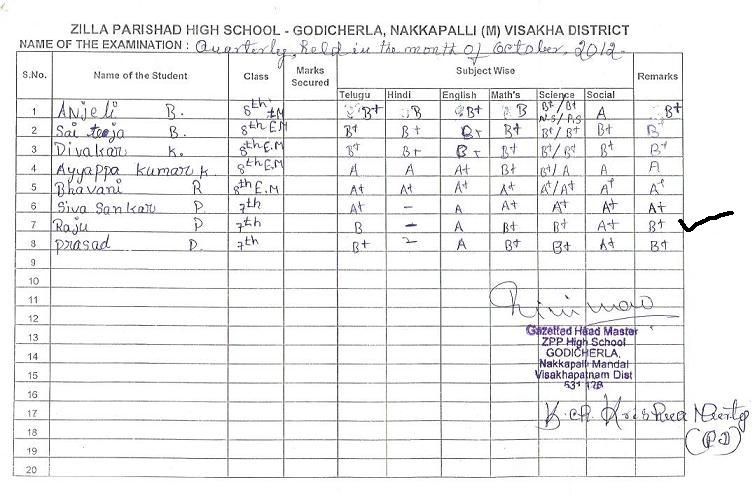 ZILLA PARISHAD HIGH SCHOOL - GODICHERLA, NAKKAPALLI (M) VISAKHA DISTRICT
NAME OF THE EXAMINATION : Quarterly, held in the month of October, 2012.
S.No. Name of the Student Class Marks Secured Subject Wise Remarks
Telugu Hindi English Math's Science Social
N.S/P.S
1 Anjeli B. 8th EM B+ B B+ B B+/B+ A B+
2 Sai teja B. 8th E.M B+ B+ B+ B+ B+/B+ B+ B+
3 Divakar K. 8th E.M B+ B+ B+ B+ B+/B+ B+ B+
4 Ayyappa Kumar K. 8th E.M A A A+ B+ B+/A A A
5 Bhavani R 8th E.M A+ A+ A+ A+ A+/A+ A+ A+
6 Siva Sankar P. 7th A+ - A A+ A+ A+ A+
7 Raju P 7th B - A B+ B+ A+ B+
8 Prasad D. 7th B+ - A B+ B+ A+ B+
9
10
11
12
13
14
15
16
17
18
19
20
Gazetted Head Master
ZPP High School
GODICHERLA,
Nakkapalli Mandal
Visakhapatnam Dist
531 126
K.ch. Krishna Murty
(PD)